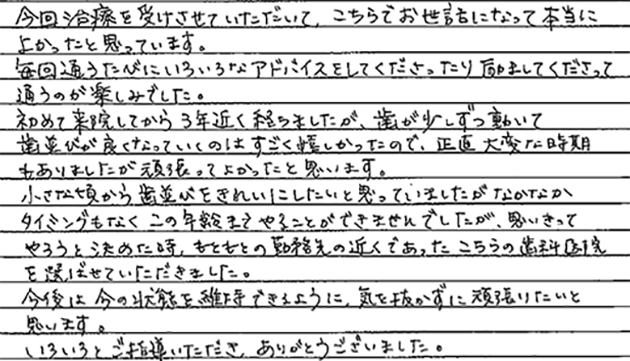 今回治療を受けさせていただいて、こちらでお世話になって本当に
よかったと思っています。
毎回通うたびにいろいろなアドバイスをしてくださったり励ましてくださって
通うのが楽しみでした。
初めて来院してから3年近く経ちましたが、歯が少しずつ動いて
歯並びが良くなっていくのはすごく嬉しかったので、正直大変な時期
もありましたが頑張ってよかったと思います。
小さな頃から歯並びをきれいにしたいと思っていましたがなかなか
タイミングもなくこの年齢までやることができませんでしたが、思いきって
やろうと決めた時、もともとの勤務先の近くであったこちらの歯科医院
を選ばせていただきました。
今後は今の状態を維持できるように、気を抜かずに頑張りたいと
思います。
いろいろとご指導いただき、ありがとうございました。